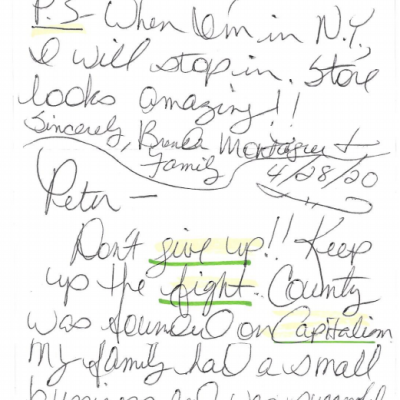 P.S- When I'm in N.Y,
I will stop in. Store
looks amazing!!
Sincerely, Brenda Montagner +
Family
4/28/20
Peter -
Don't give up!! Keep
up the fight. County
was founded on Capitalism
My family had a small
business and was successful